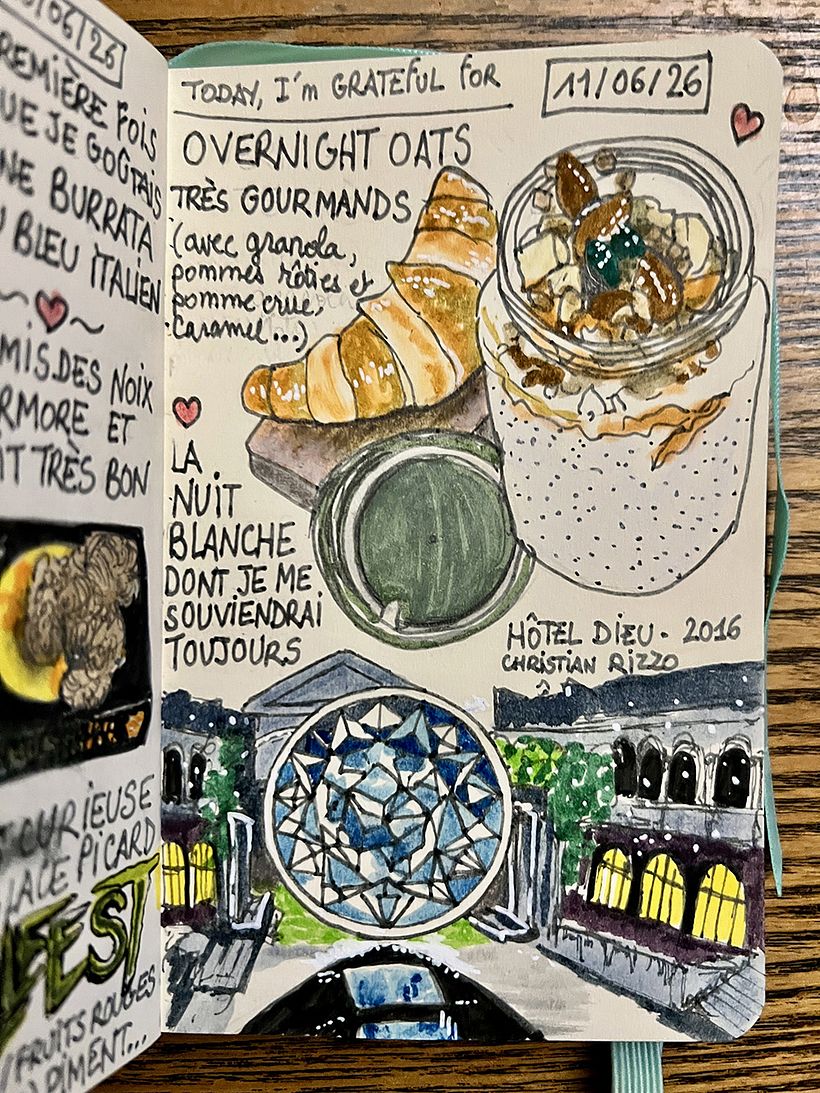 /06/26
PREMIÈRE FOIS
QUE JE GOÛTAIS
UNE BURRATA
BLEU ITALIEN
MIS DES NOIX
ET
TRÈS BON
CURIEUSE
PICARD
FEST
FRUITS ROUGES
PIMENT...
TODAY, I'm GRATEFUL FOR
11/06/26
OVERNIGHT OATS
TRÈS GOURMANDS
(avec granola,
pommes rôties et
pomme crue,
caramel...)
LA
NUIT
BLANCHE
DONT JE ME
SOUVIENDRAI
TOUJOURS
HÔTEL DIEU. 2016
CHRISTIAN RIZZO